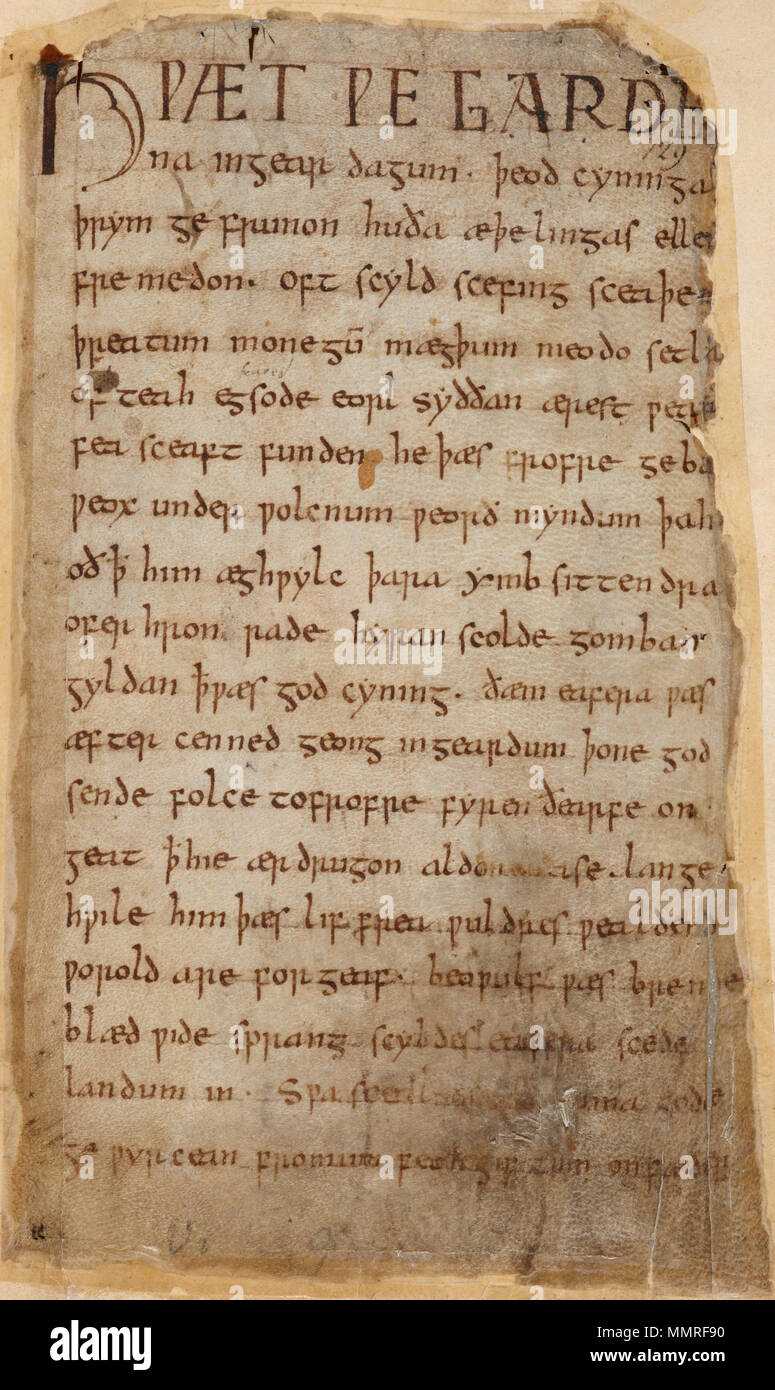 HǷÆT ǷE GARDE
na ingear dagum · þeod cyninga
þrym ge frunon huða æþelingas elle
fre medon. oft scyld scefing sceaþe
þreatum monegū mægþum meodo setla
of teah egsode eorl syððan ærest ƿear
fea sceaft funden he þæs frofre geba
ƿeox under ƿolcnum ƿeorð myndum þah
oðꝥ him æghƿylc þara ymb sittendra
ofer hron rade hyran scolde gomban
gyldan ꝥƿæs god cyning. ðæm eafera ƿæs
æfter cenned geong ingeardum þone god
sende folce tofrofre fyren ðearfe on
geat ꝥhie ær drugon aldor ase. lange
hƿile him þæs lif frea ƿuldres ƿealdend
ƿorold are for geaf. beoƿulf ƿæs breme
blæd ƿide sprang scyldes eafera scede
landum in. Sƿa sceal guma gode
ge ƿyrcean fromum feoh giftum onfæder
129
alamy
Image ID: MMRF90
www.alamy.com